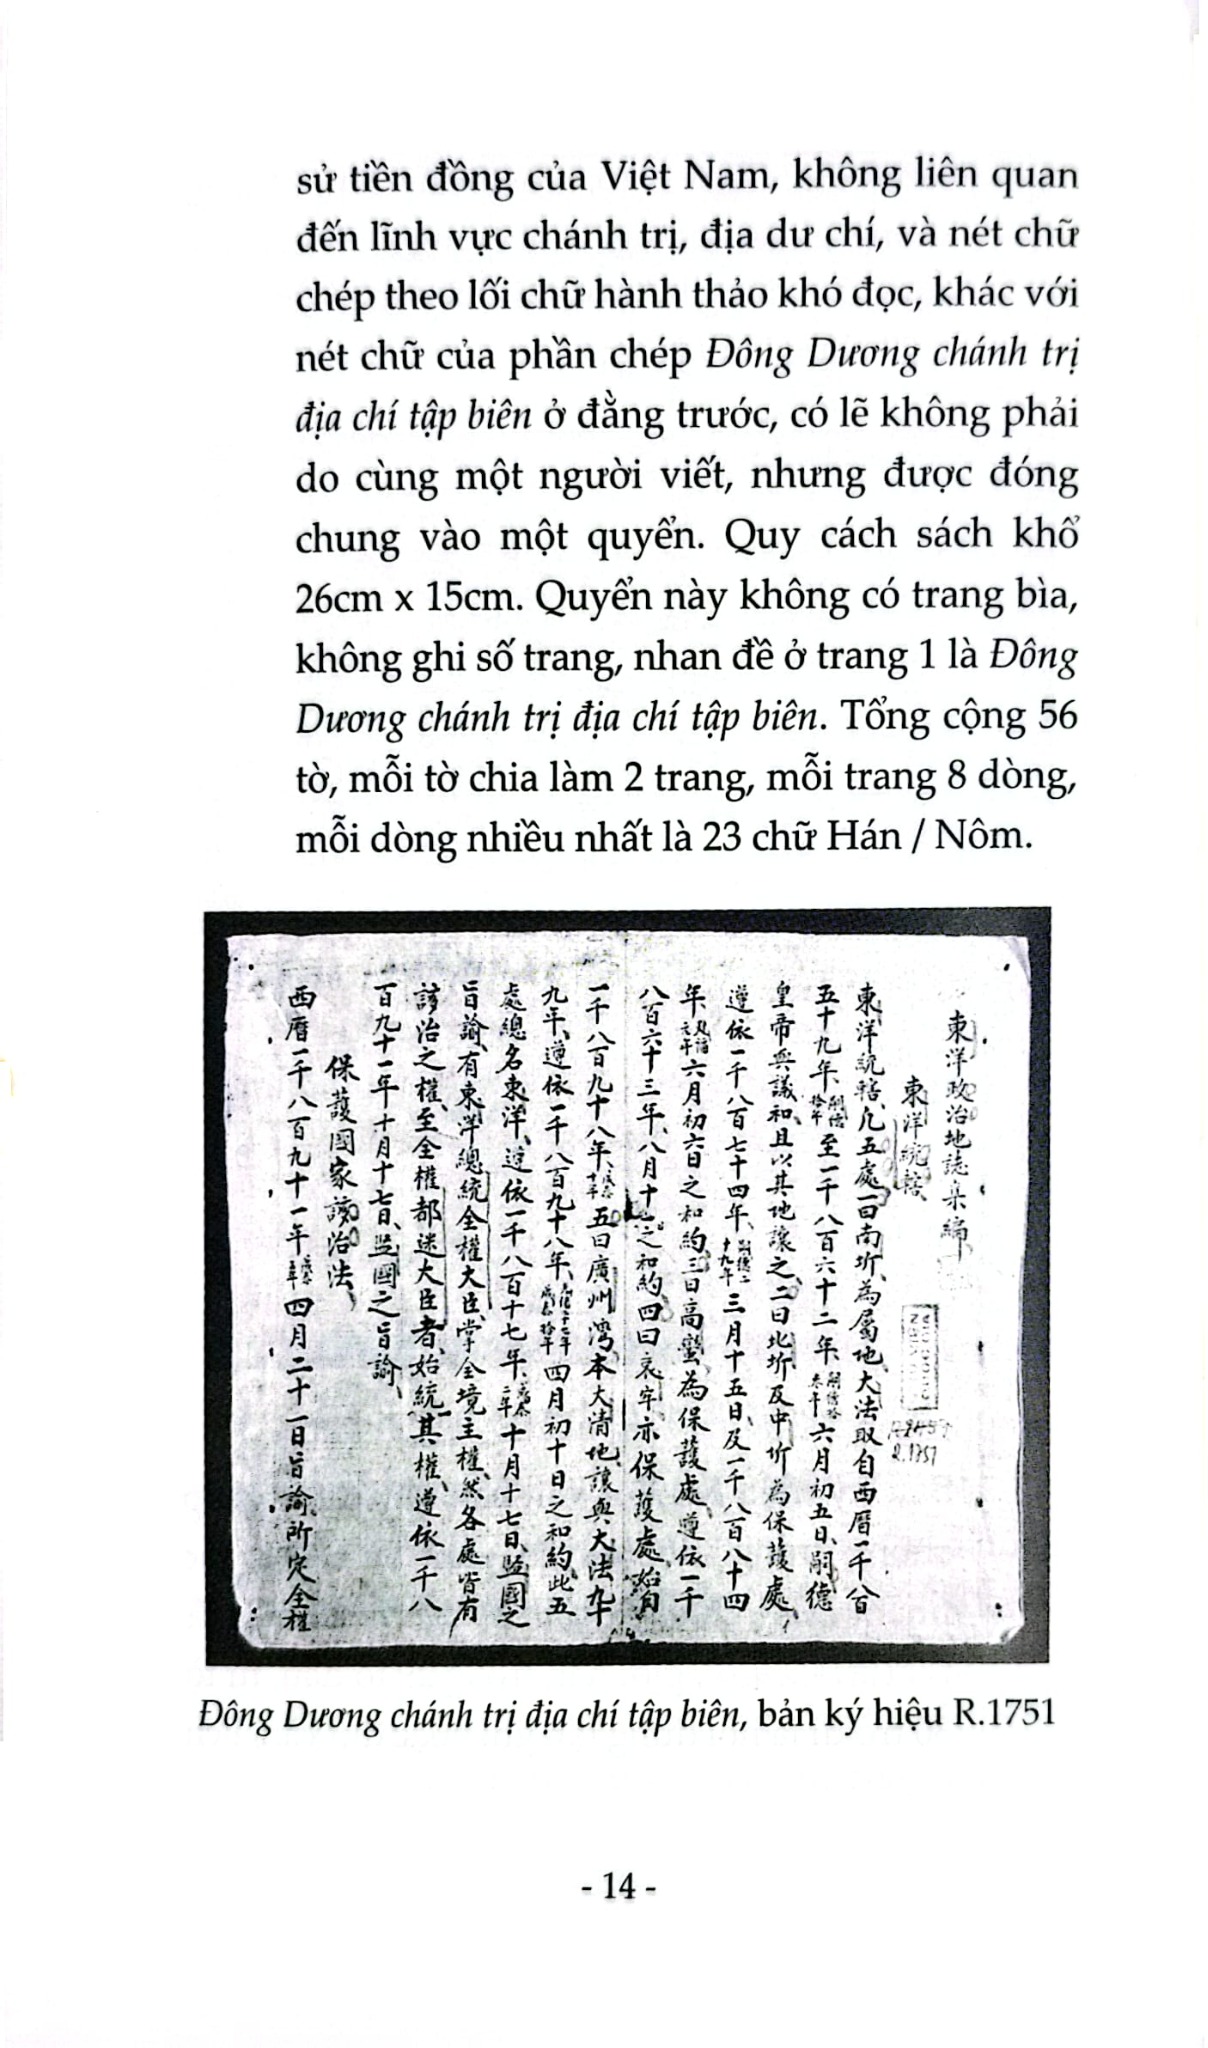 sử tiền đồng của Việt Nam, không liên quan
đến lĩnh vực chánh trị, địa dư chí, và nét chữ
chép theo lối chữ hành thảo khó đọc, khác với
nét chữ của phần chép Đông Dương chánh trị
địa chí tập biên ở đằng trước, có lẽ không phải
do cùng một người viết, nhưng được đóng
chung vào một quyển. Quy cách sách khổ
26cm x 15cm. Quyển này không có trang bìa,
không ghi số trang, nhan đề ở trang 1 là Đông
Dương chánh trị địa chí tập biên. Tổng cộng 56
tờ, mỗi tờ chia làm 2 trang, mỗi trang 8 dòng,
mỗi dòng nhiều nhất là 23 chữ Hán / Nôm.
東洋政治地誌集編
東洋統轄
R.1751
東洋統轄凡五處一曰南圻為屬地大法取自西曆一千八百
五十九年至一千八百六十二年六月初五日嗣德
皇帝與議和且以其地讓之二曰北圻及中圻為保護處
遵依一千八百七十四年三月十五日及一千八百八十四
年六月初六日之和約三曰高蠻為保護處遵依一千
八百六十三年八月十一之和約四曰哀牢亦保護處始自
一千八百九十八年五曰廣州灣本大清地讓與大法九十
九年遵依一千八百九十八年四月初十日之和約此五
處總名東洋遵依一千八百十七年十月十七日監國之
旨諭有東洋總統全權大臣掌全境主權然各處皆有
該治之權至全權都逑大臣者始統其權遵依一千八
百九十一年十月十七日監國之旨諭
保護國家該治法
西曆一千八百九十一年四月二十一日旨諭所定全權
Đông Dương chánh trị địa chí tập biên, bản ký hiệu R.1751
- 14 -